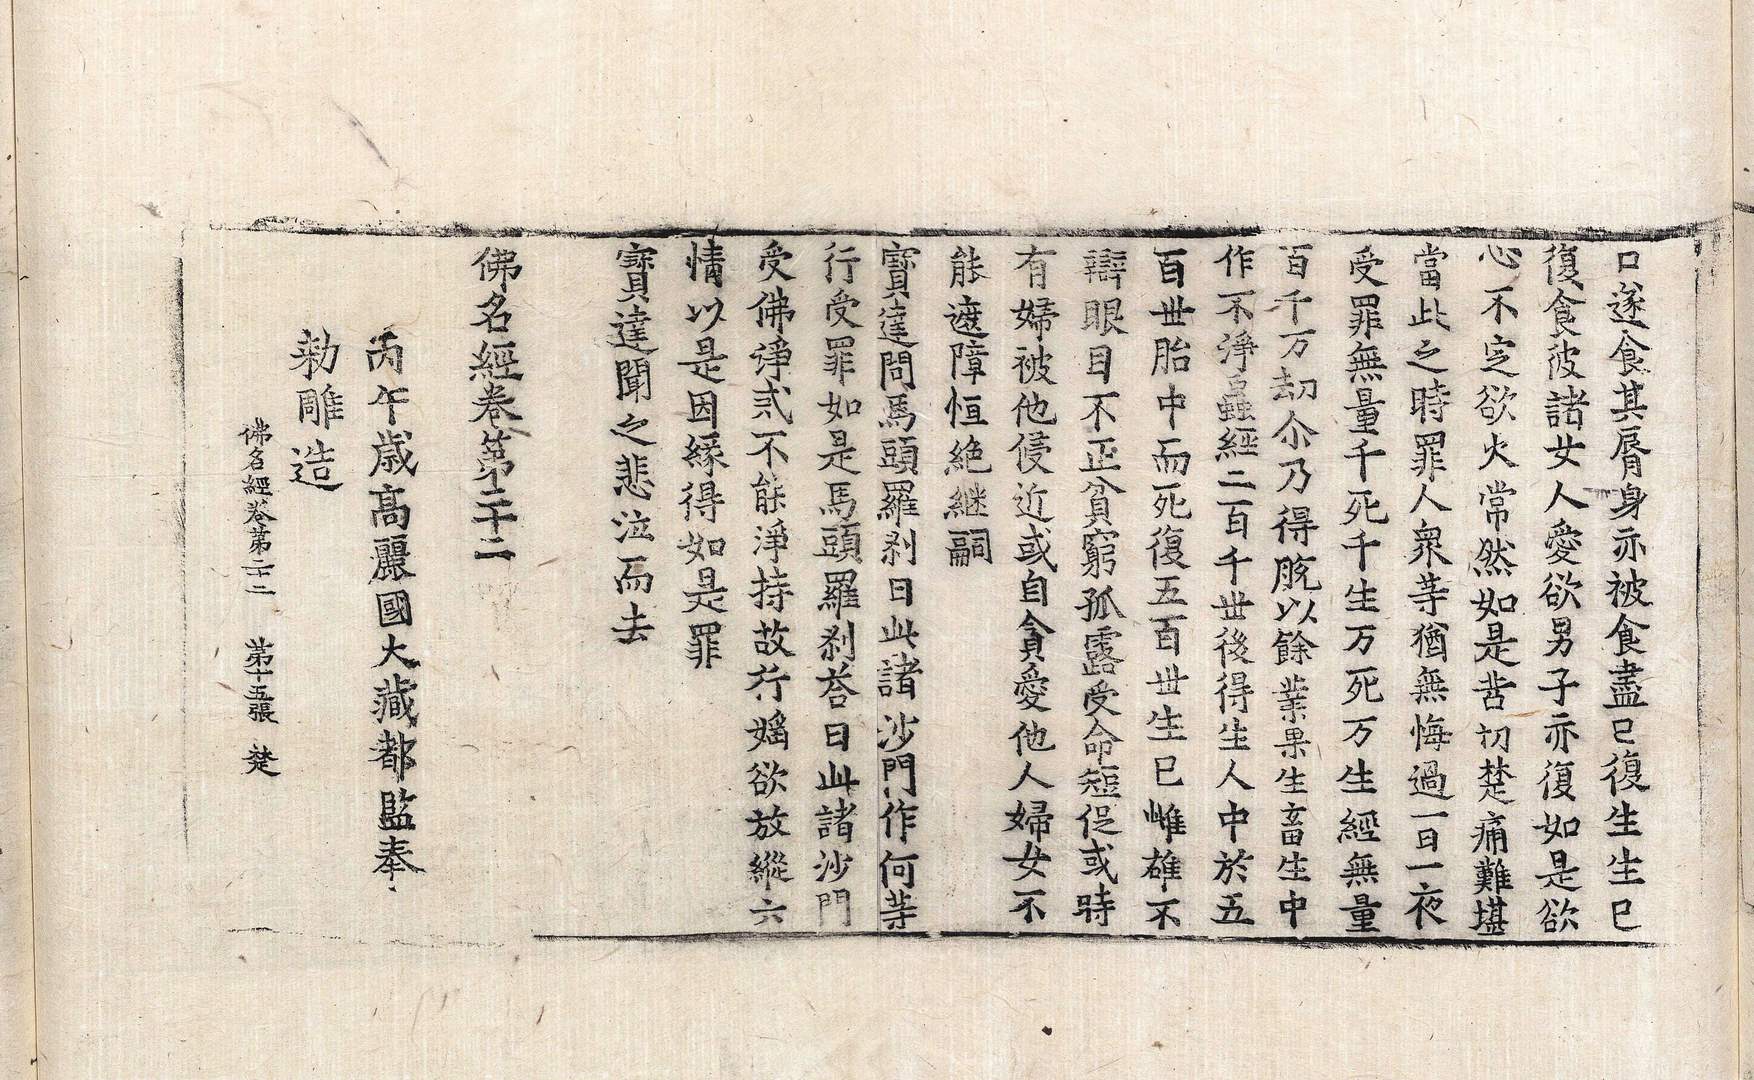 口遂食其脣身亦被食盡已復生生已
復食彼諸女人愛欲男子亦復如是欲
心不定欲火常然如是苦切楚痛難堪
當此之時罪人衆䓁猶無悔過一日一夜
受罪無量千死千生万死万生經無量
百千万劫尒乃得脫以餘業果生畜生中
作不淨蟲經二百千世後得生人中於五
百世胎中而死復五百世生已雌雄不
辯眼目不正貧窮孤露受命短促或時
有婦被他侵近或自貪愛他人婦女不
能遮障恒絶継嗣
寳達問馬頭羅刹曰此諸沙門作何䓁
行受罪如是馬頭羅刹荅曰此諸沙門
受佛諍戒不能淨持故行婬欲放縱六
情以是因緣得如是罪
寳達聞之悲泣而去
佛名經卷第二十二
丙午歳高麗國大藏都監奉
勑雕造
佛名經卷第二十二 第十五張 楚